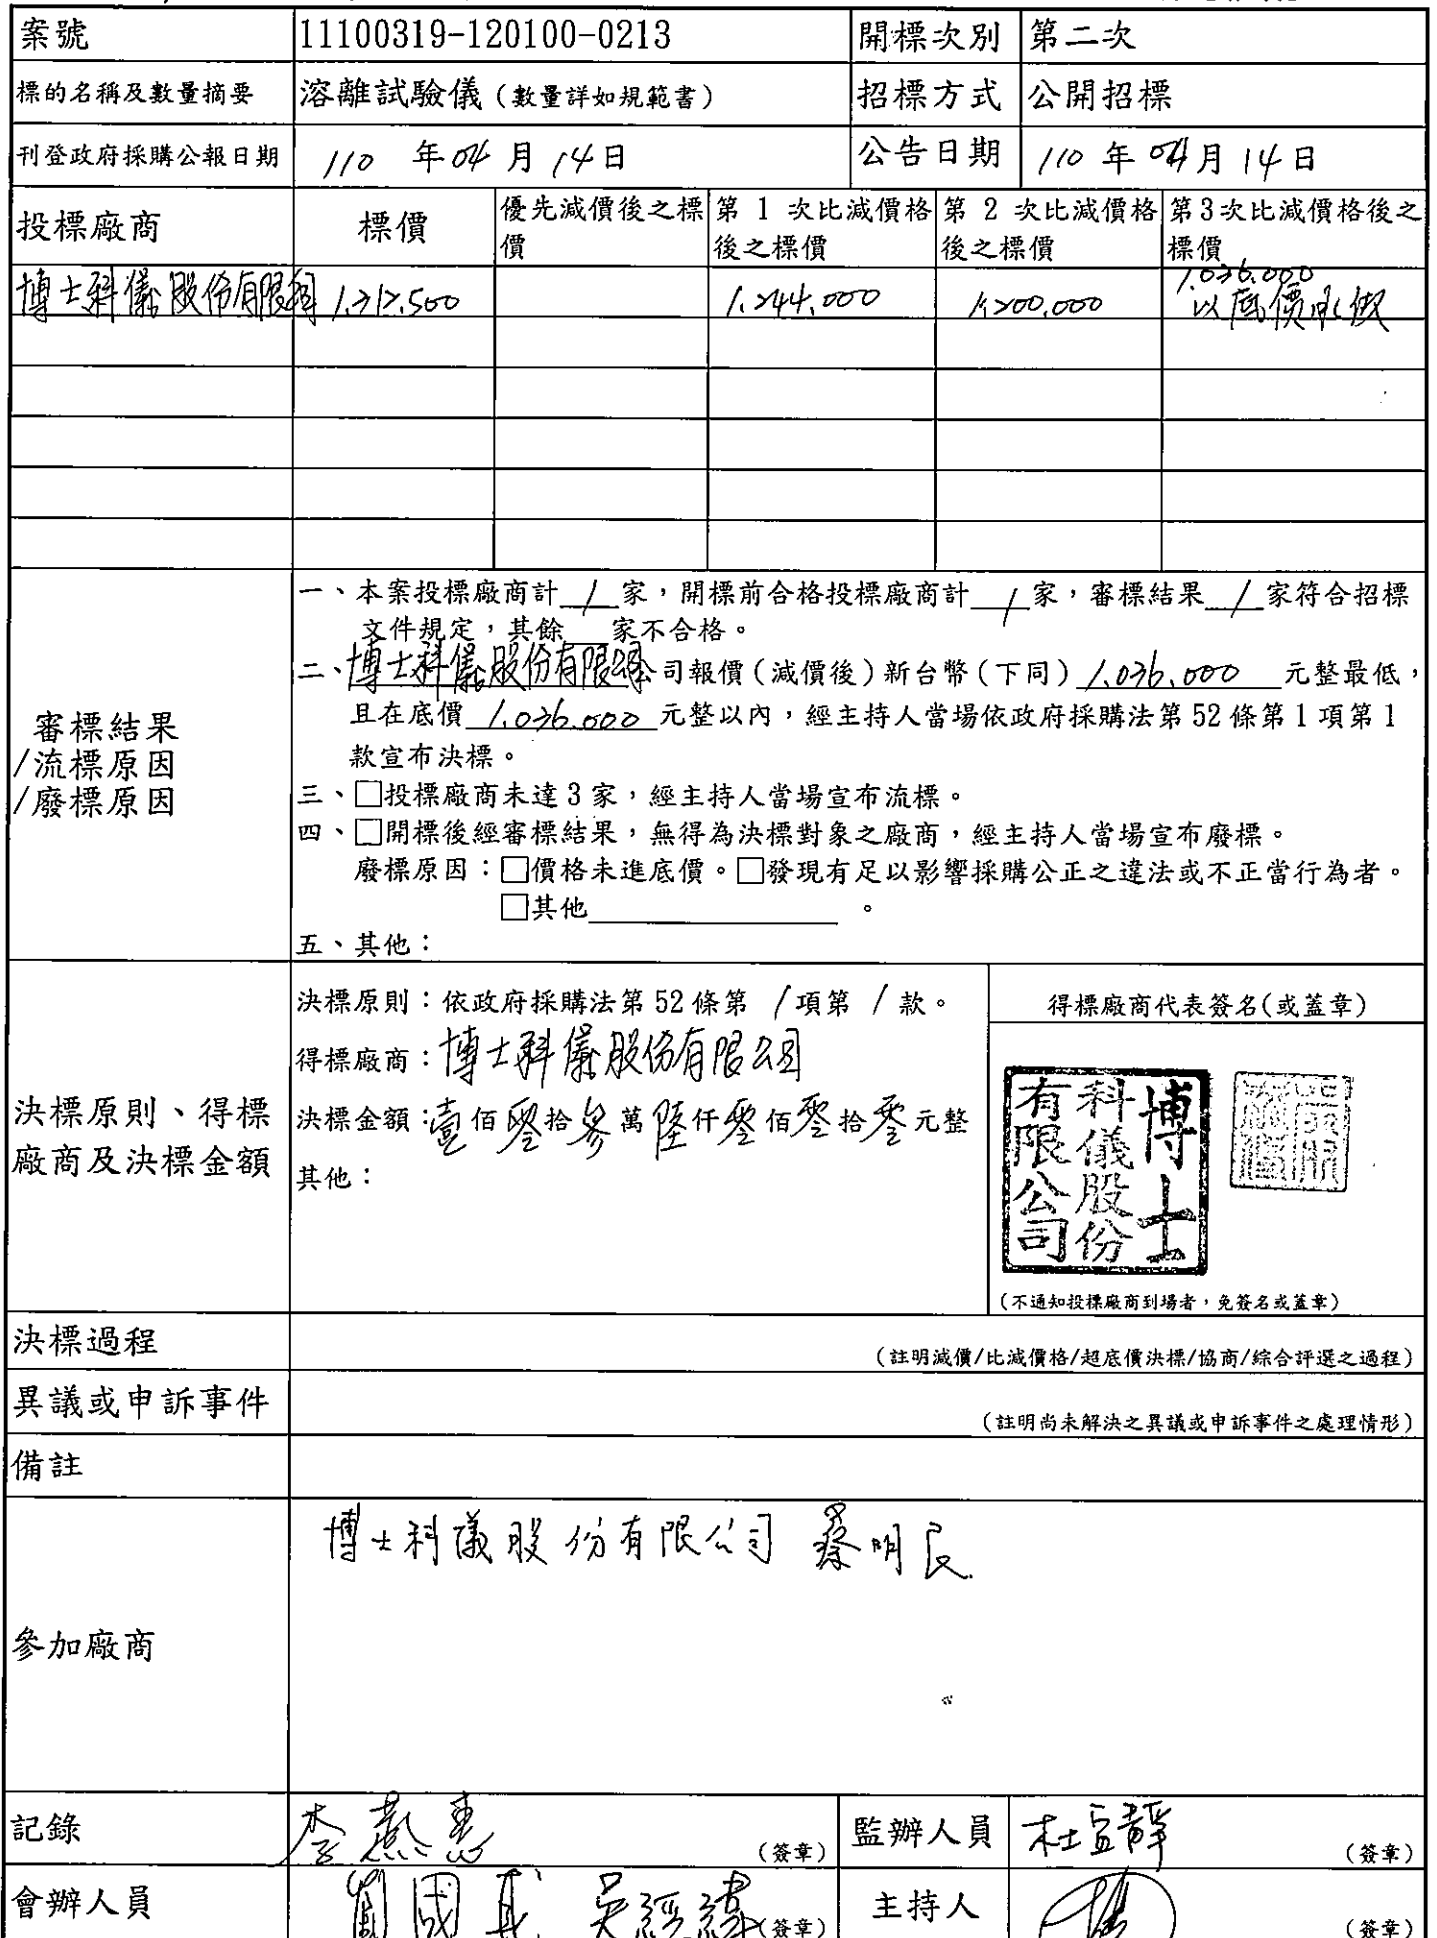 案號 11100319-120100-0213 開標次別 第二次
標的名稱及數量摘要 溶離試驗儀(數量詳如規範書) 招標方式 公開招標
刊登政府採購公報日期 110 年 04 月 14 日 公告日期 110 年 04 月 14 日
投標廠商 標價 優先減價後之標價 第 1 次比減價格後之標價 第 2 次比減價格後之標價 第3次比減價格後之標價
1.036.000
博士科儀股份有限公司 1.312.500 1.244.000 1.200.000 以底價承做
審標結果
/流標原因
/廢標原因
一、本案投標廠商計 1 家,開標前合格投標廠商計 1 家,審標結果 1 家符合招標
文件規定,其餘 家不合格。
二、博士科儀股份有限公司公司報價(減價後)新台幣(下同) 1.036.000 元整最低,
且在底價 1.036.000 元整以內,經主持人當場依政府採購法第 52 條第 1 項第 1
款宣布決標。
三、□投標廠商未達 3 家,經主持人當場宣布流標。
四、□開標後經審標結果,無得為決標對象之廠商,經主持人當場宣布廢標。
廢標原因:□價格未進底價。□發現有足以影響採購公正之違法或不正當行為者。
□其他 。
五、其他:
決標原則、得標
廠商及決標金額
決標原則:依政府採購法第 52 條第 1 項第 1 款。
得標廠商:博士科儀股份有限公司
決標金額:壹佰零拾參萬陸仟零佰零拾零元整
其他:
得標廠商代表簽名(或蓋章)
博士
科儀股份
有限公司
(不通知投標廠商到場者,免簽名或蓋章)
決標過程 (註明減價/比減價格/超底價決標/協商/綜合評選之過程)
異議或申訴事件 (註明尚未解決之異議或申訴事件之處理情形)
備註
參加廠商
博士科儀股份有限公司 蔡明良
記錄 李燕惠 (簽章) 監辦人員 (簽章)
會辦人員 (簽章) 主持人 (簽章)